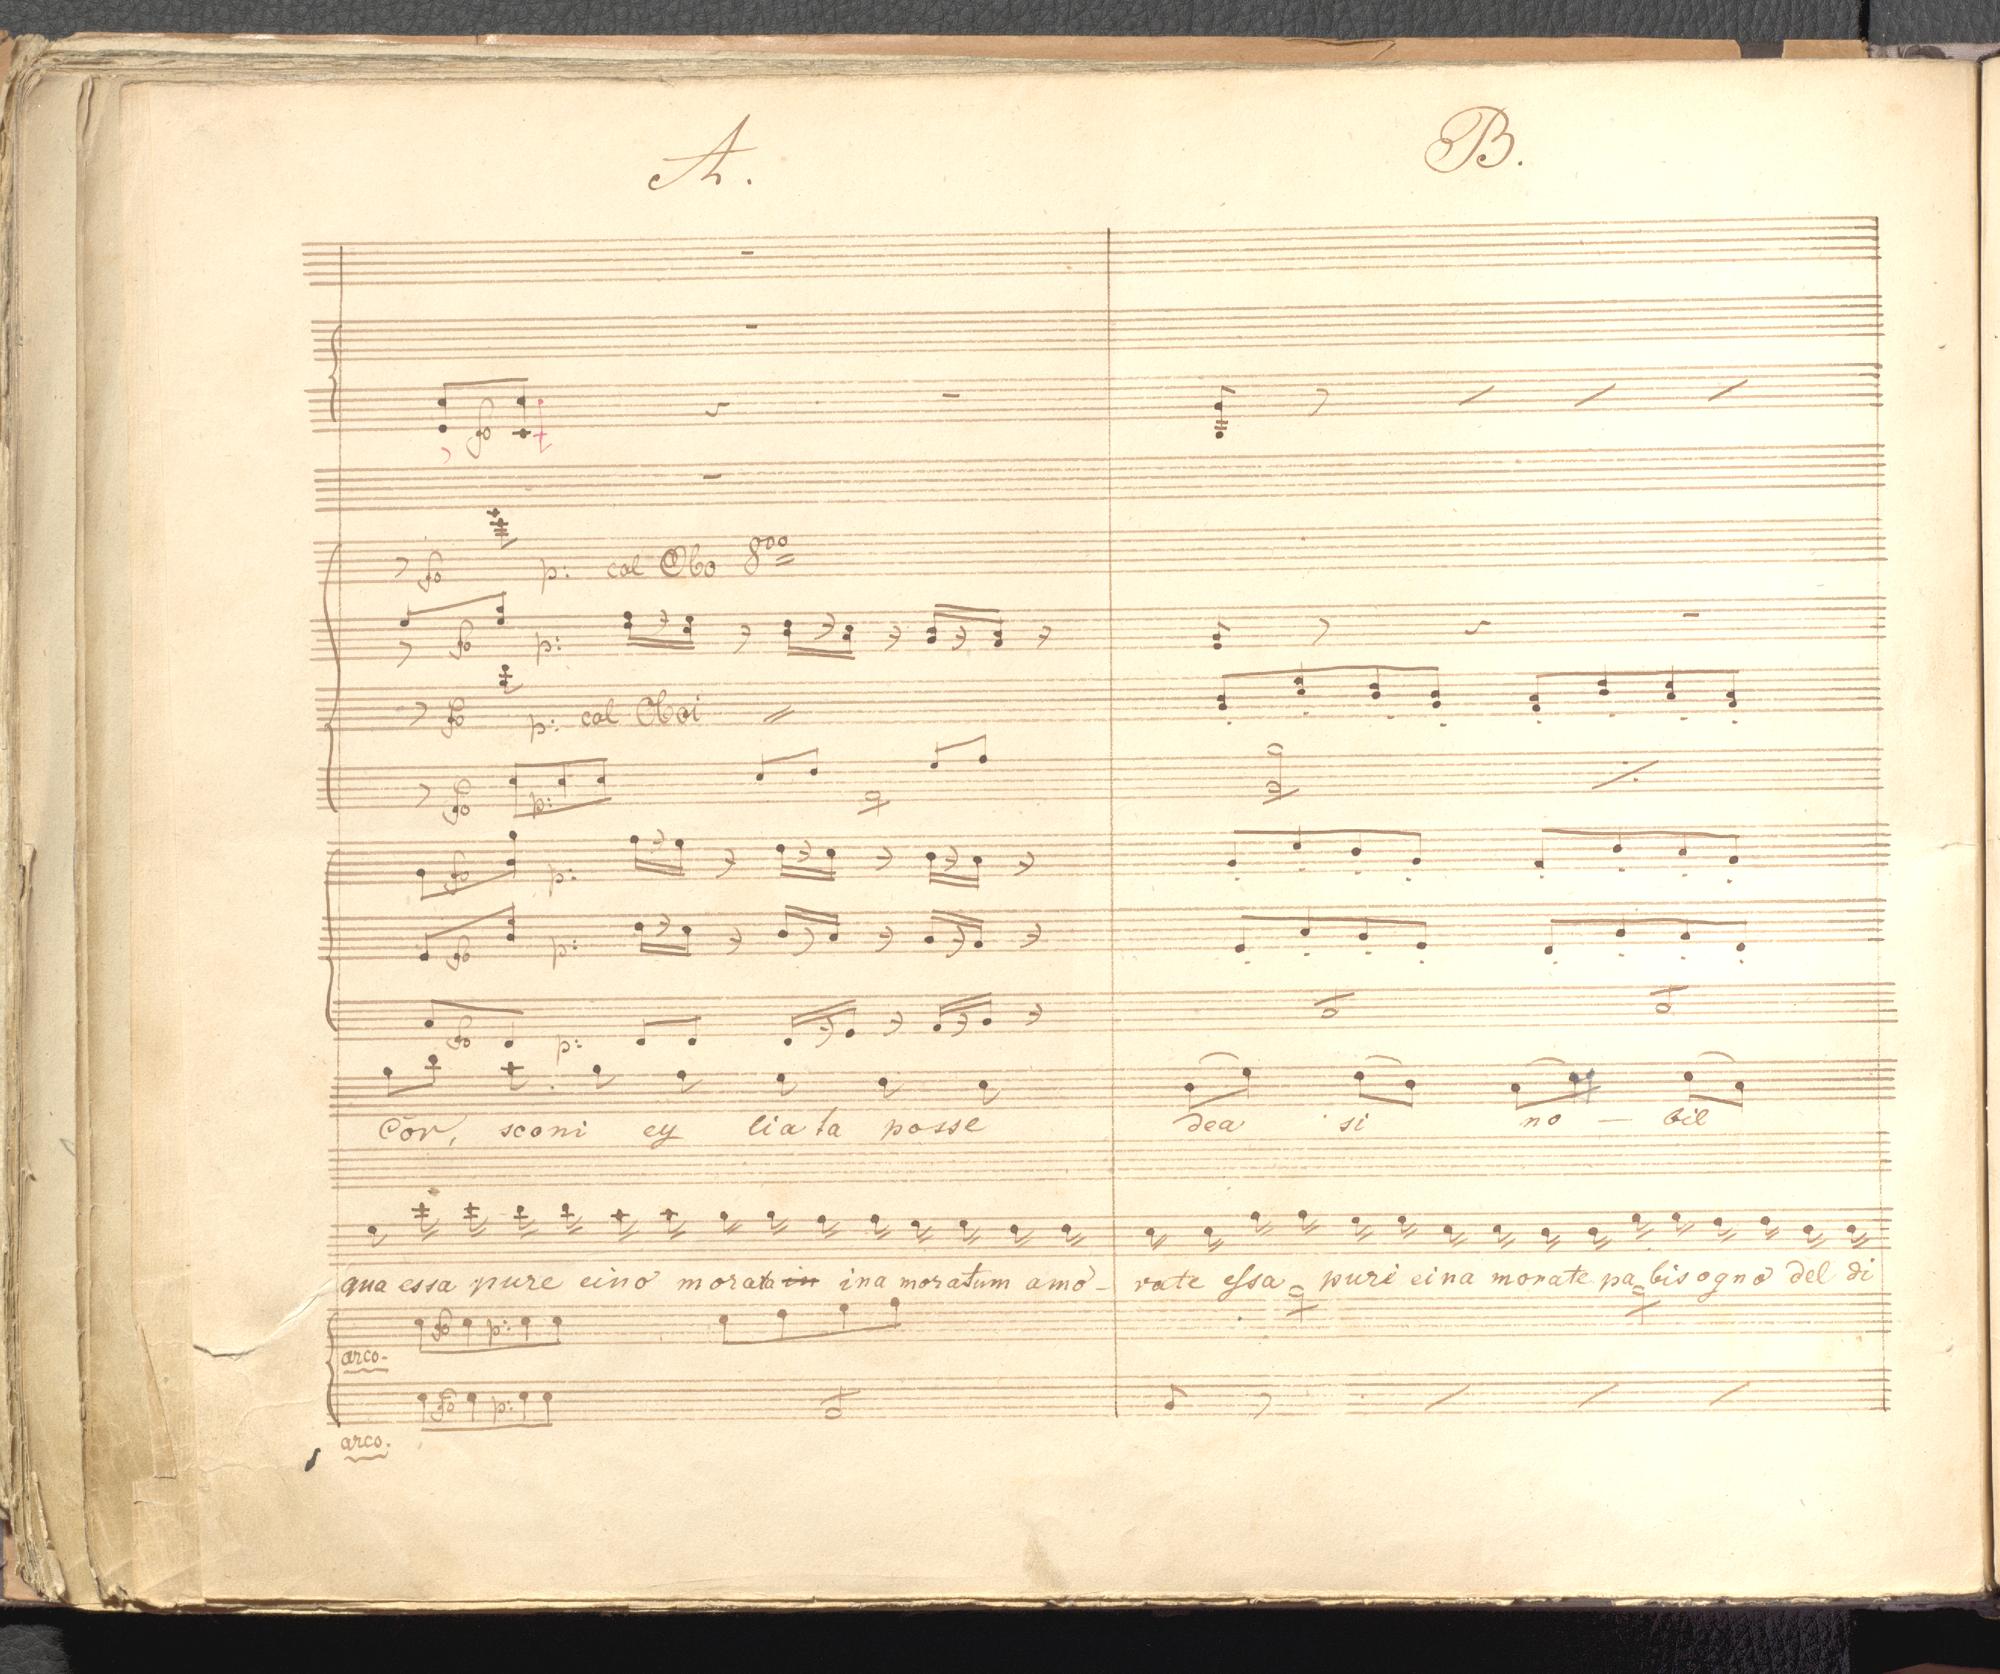 A. B.
fo
fo p: col Obo 8va
fo p:
fo p: col Oboi
fo p:
fo p:
fo p:
fo p:
Cor, sconi ey lia ta posse dea si no — bil
qua essa pure eino morata in ina moratum amo- rate essa puri eina morate pa bisogno del di
fo p:
arco.
fo p:
arco.